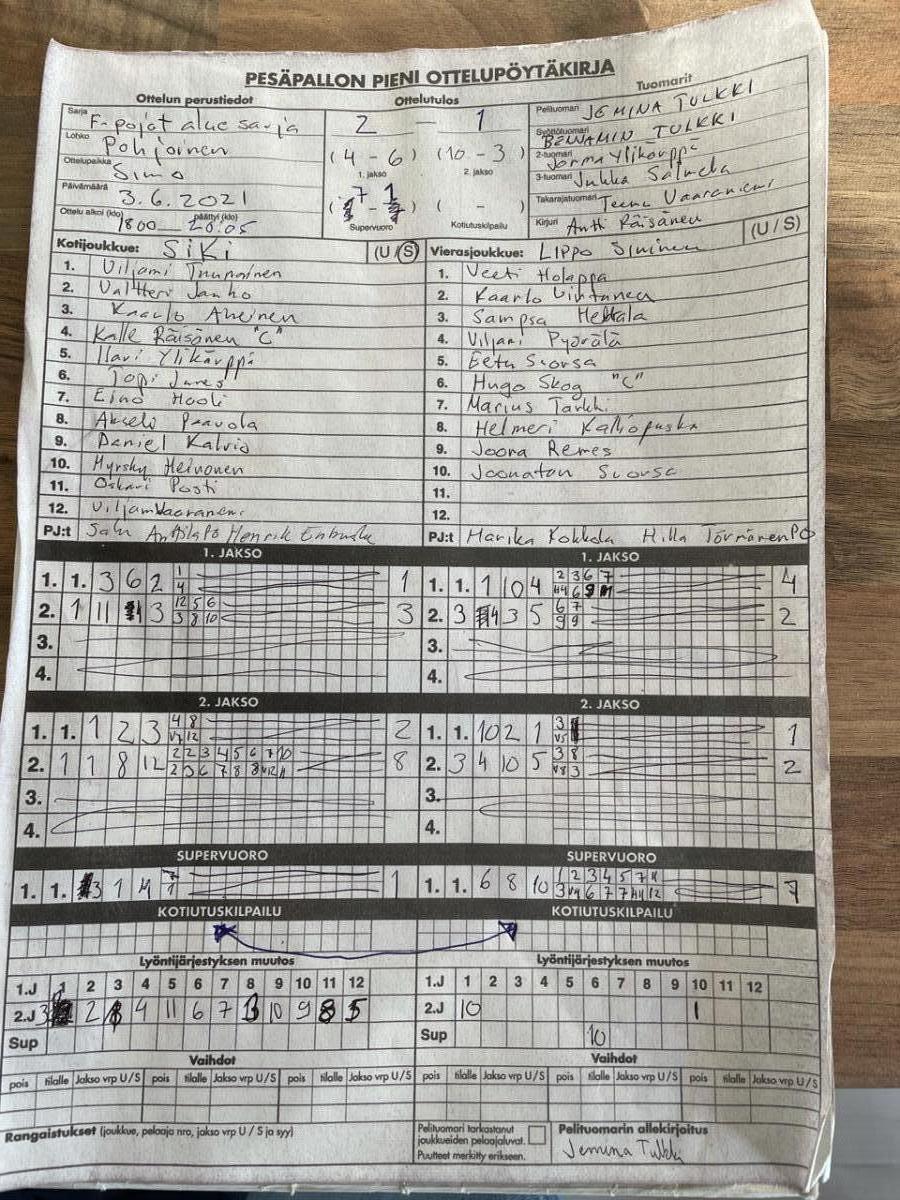 PESÄPALLON PIENI OTTELUPÖYTÄKIRJA
Ottelun perustiedot
Sarja F-pojat alue sarja
Lohko Pohjoinen
Ottelupaikka Simo
Päivämäärä 3.6.2021
Ottelu alkoi (klo) 1800 päättyi (klo) 20.05
Ottelutulos
2 — 1
(4 - 6) (10 - 3)
1. jakso 2. jakso
( - ) ( - )
Supervuoro Kotiutuskilpailu
Tuomarit
Pelituomari JEMINA TULKKI
Syöttötuomari BENJAMIN TULKKI
2-tuomari Jorma Ylikärppä
3-tuomari Jukka Salmela
Takarajatuomari Teemu Vaaraniemi
Kirjuri Antti Räisänen
Kotijoukkue: SiKi (U/S)
1. Viljami
2. Valtteri Janho
3. Kaarlo
4. Kalle Räisänen "C"
5. Ilari Ylikärppä
6. Topi
7. Eino Hooli
8. Akseli Paavola
9. Daniel
10. Myrsky Heinonen
11. Oskari Posti
12. Viljami Vaaraniemi
PJ:t Antti Henrik
Vierasjoukkue: LIPPO Sininen (U/S)
1. Veeti Holappa
2. Kaarlo
3. Sampsa
4. Viljami Pyörälä
5. Eetu Suorsa
6. Hugo Skog "C"
7. Marius
8. Helmeri Kalliopuska
9. Joona Remes
10. Joonatan Suorsa
11.
12.
PJ:t Marika Kokkola Hilla Törmänen PÖ
1. JAKSO
1. 1. 3 6 2 1 4 1
2. 1 11 3 12 5 6 3 8 10 3
3.
4.
1. JAKSO
1. 1. 1 10 4 2 3 6 7 4
2. 3 3 5 6 7 9 9 2
3.
4.
2. JAKSO
1. 1. 1 2 3 4 8 V7 12 2
2. 1 1 8 12 2 2 3 4 5 6 7 10 2 3 6 7 8 8 8
3.
4.
2. JAKSO
1. 1. 10 2 1 3 V5 1
2. 3 4 10 5 3 8 V8 3 2
3.
4.
SUPERVUORO
1. 1. 3 1 4 7 1 1
SUPERVUORO
1. 1. 6 8 10 1 2 3 4 5 7 7
KOTIUTUSKILPAILU
KOTIUTUSKILPAILU
Lyöntijärjestyksen muutos
1.J 1 2 3 4 5 6 7 8 9 10 11 12
2.J 3 2 4 11 6 7 10 9 8 5
Sup
Lyöntijärjestyksen muutos
1.J 1 2 3 4 5 6 7 8 9 10 11 12
2.J 10 1
Sup 10
Vaihdot
pois tilalle Jakso vrp U/S pois tilalle Jakso vrp U/S pois tilalle Jakso vrp U/S
Vaihdot
pois tilalle Jakso vrp U/S pois tilalle Jakso vrp U/S pois tilalle Jakso vrp U/S
Rangaistukset (joukkue, pelaaja nro, jakso vrp U / S ja syy)
Pelituomari tarkastanut
joukkueiden pelaajaluvat.
Puutteet merkitty erikseen.
Pelituomarin allekirjoitus
Jemina Tulkki